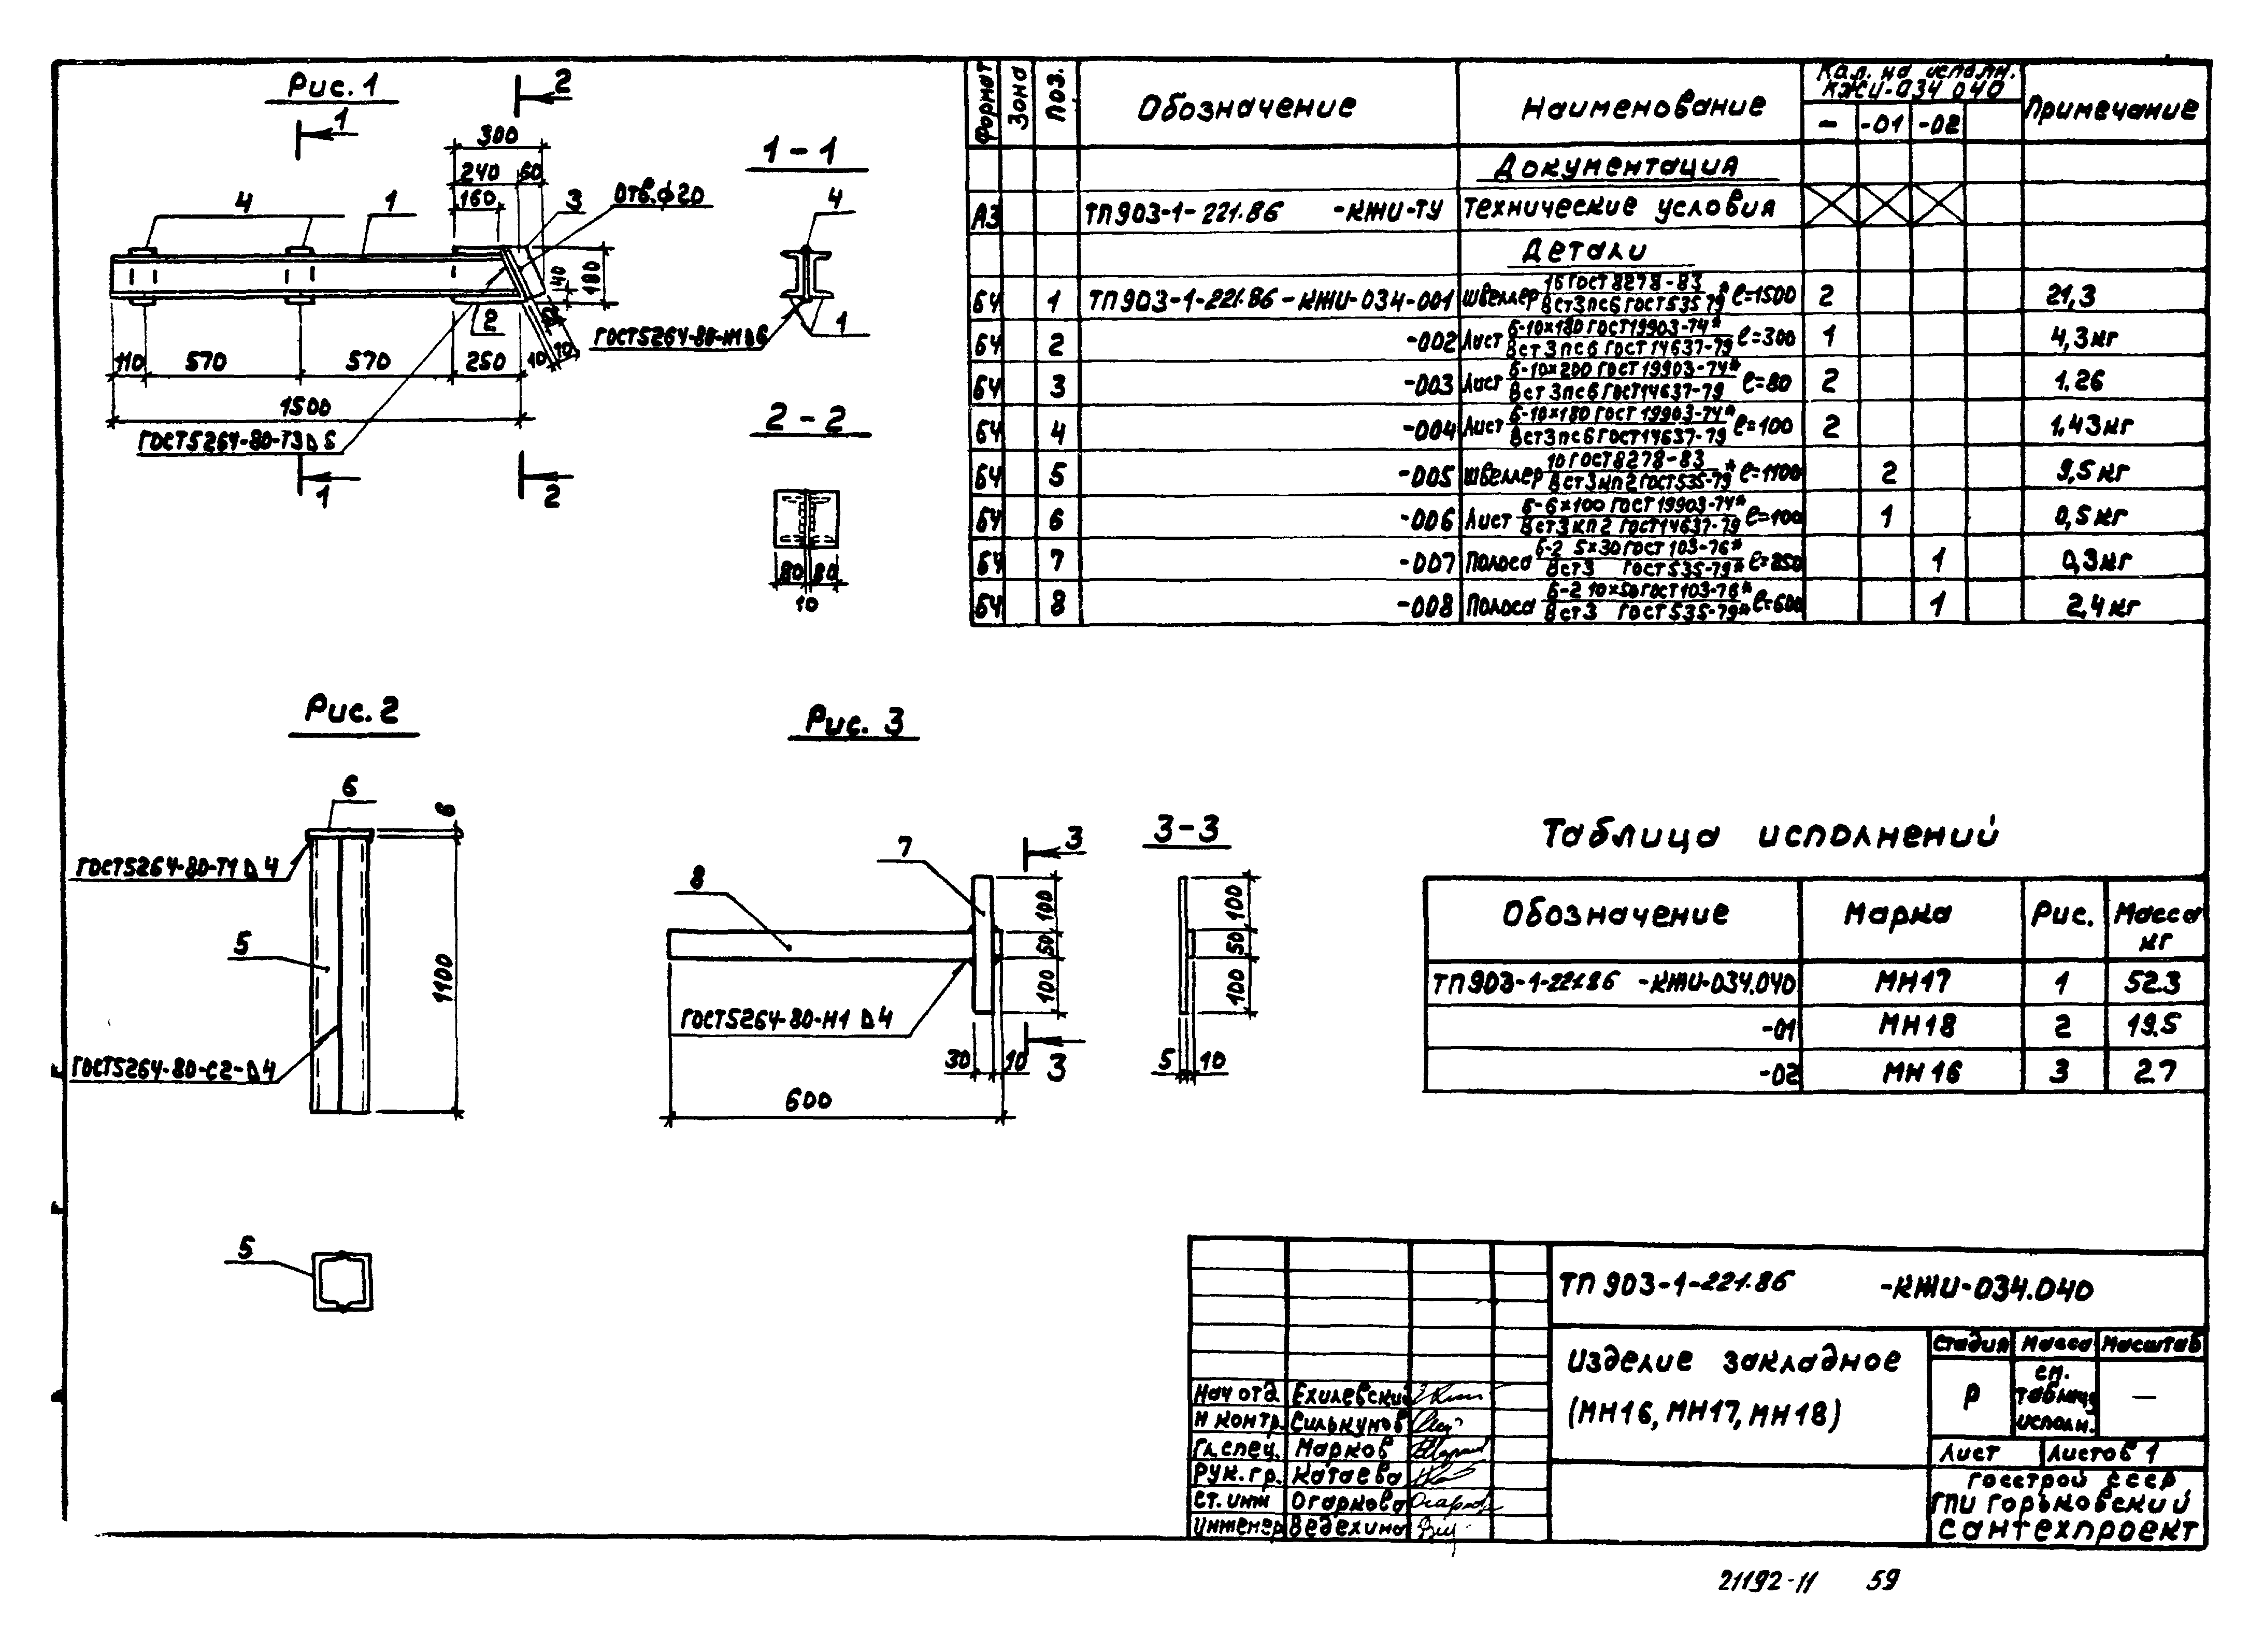 Рис. 1
1
2
300
240 60
160
3
Отв.ф20
4
1
40
180
2
110 570 570 250
10
1500
ГОСТ5264-80-Т3⊿6
1
2
1-1
4
1
ГОСТ5264-80-Н1⊿6
2-2
80 80
10
Формат Зона Поз. Обозначение Наименование Кол. на исполн. КЖИ-034 040 Примечание
- -01 -02
Документация
А3 ТП903-1-221.86 -КЖИ-ТУ Технические условия
Детали
БЧ 1 ТП903-1-221.86-КЖИ-034-001 Швеллер 16 ГОСТ 8278-83 / Вст3пс6 ГОСТ 535-79* ℓ=1500 2 21,3
БЧ 2 -002 Лист Б-10×180 ГОСТ19903-74* / Вст3пс6 ГОСТ 14637-79 ℓ=300 1 4,3кг
БЧ 3 -003 Лист Б-10×200 ГОСТ 19903-74* / Вст3пс6 ГОСТ14637-79 ℓ=80 2 1.26
БЧ 4 -004 Лист Б-10×180 ГОСТ 19903-74* / Вст3пс6 ГОСТ14637-79 ℓ=100 2 1,43кг
БЧ 5 -005 Швеллер 10 ГОСТ8278-83 / Вст3кп2 ГОСТ535-79* ℓ=1100 2 9,5кг
БЧ 6 -006 Лист Б-6×100 ГОСТ 19903-74* / Вст3кп2 ГОСТ14637-79 ℓ=100 1 0,5кг
БЧ 7 -007 Полоса Б-2 5×30 ГОСТ 103-76* / Вст3 ГОСТ535-79* ℓ=250 1 0,3кг
БЧ 8 -008 Полоса Б-2 10×50 ГОСТ 103-76* / Вст3 ГОСТ535-79* ℓ=600 1 2,4кг
Рис. 2
6
6
ГОСТ5264-80-Т1⊿4
5
1100
ГОСТ5264-80-С2-⊿4
5
Рис. 3
8
7
3
100
50
100
ГОСТ5264-80-Н1⊿4
30 10
3
600
3-3
100
50
100
5 10
Таблица исполнений
Обозначение Марка Рис. Масса кг
ТП903-1-221.86 -КЖИ-034.040 МН17 1 52.3
-01 МН18 2 19.5
-02 МН16 3 2.7
ТП 903-1-221.86 -КЖИ-034.040
Изделие закладное
(МН16, МН17, МН18)
Стадия Масса Масштаб
Р см. таблицу исполн. —
Лист Листов 1
Госстрой СССР
ГПИ Горьковский
Сантехпроект
Нач отд. Ехилевский
Н контр. Силькунов
Гл. спец. Марков
Рук. гр. Катаева
Ст. инж Огаркова
Инженер Ведехина
21192-11 59